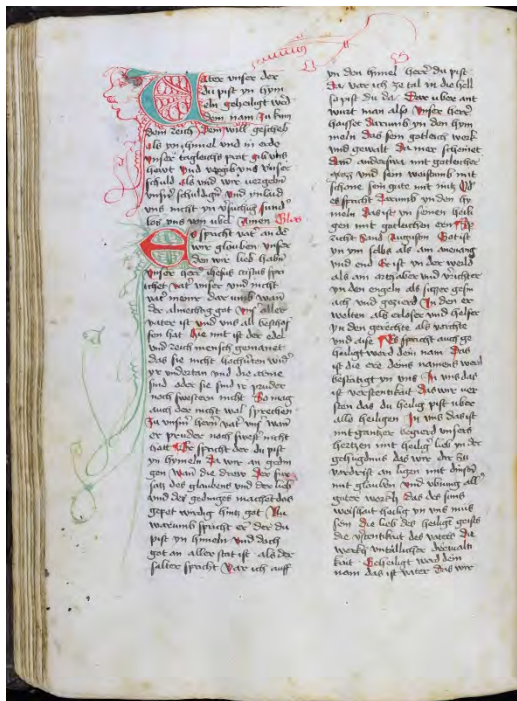 Vater vnser der
du pist yn hym
eln geheiligt werd
dein nam Zu kum
dein reich Dein will geschech
als yn himel vnd in erde
Vnser tagleichs prot gib vns
hewt Vnd vergib vns vnser
schuld als vnd wir vergeben
vnsern schuldigern Vnd enlaid
vns nicht yn versuchung sund
los vns von vbel Amen Glos
Er spricht vater an dem
wir glauben Vnser
den wir lieb haben
Vnser herr ihesus cristus spri
chet vater vnser vnd nicht
vater meiner Darumb wan
der almechtig got vnser aller
vater ist vnd vns all beschaf
fen hat Hie mit ist der edel
vnd reich mensch gemanet
das sie nicht hochuten wider
yr vndertan vnd die arme
sind oder sie sind ir pruder
noch swestern nicht So mag
auch der nicht wol sprechen
Zu vnsern herrn vater vnser wan
er pruder noch swester nicht
hatt Er spricht der du pist
yn hymeln Da wir an gedin
gen wan die drew Der fur
satz des glaubens vnd der lieb
vnd des gedinges machet das
gepet wirdig hintz got Nu
warumb spricht er der du
pist yn himeln vnd doch
got an aller stat ist als der
salter spricht Var ich auff
yn den himel herr du pist
da var ich ze tal in die hell
so pist du da Dar vber ant
wurt man also Vnser herr
haisset darumb yn den hym
meln das sein gotleich werk
vnd gewalt da mer scheinet
dann anderswa mit gotleicher
vnd sein weishait mit
schone sein gute mit nutz Od
er spricht darumb yn den hy
meln Das ist yn seinen heili
gen mit gotleichen ern Es
spricht Sand Augustin Got ist
yn ym selbs als ain anuang
vnd end Er ist yn der werld
als ain orthaber vnd verrichter
yn den engeln als susser gesm
ach vnd gezierd In den er
welten als erloser vnd helfer
yn den gerechten als vorchte
vnd Es spricht auch ge
heiligt werd dein nam Das
ist die ere deins namens werd
bestatigt yn vns In vns das
ist verstentikait Das wir ver
sten das du heilig pist vber
alle heiligen In vns das ist
mit gantzer begierd vnsers
hertzen mit heiliger lieb yn der
gehugnuss das wir der
verdreist an ligen mit dinsten
mit glauben vnd vbung aller
guter werkh Das des suns
weishait heilig yn vns mus
sein Die lieb des heiligen geists
die verstentikait des vaters Die
werkh vntailleicher driualti
kait Geheiligt werd dein
nam das ist vater das wir